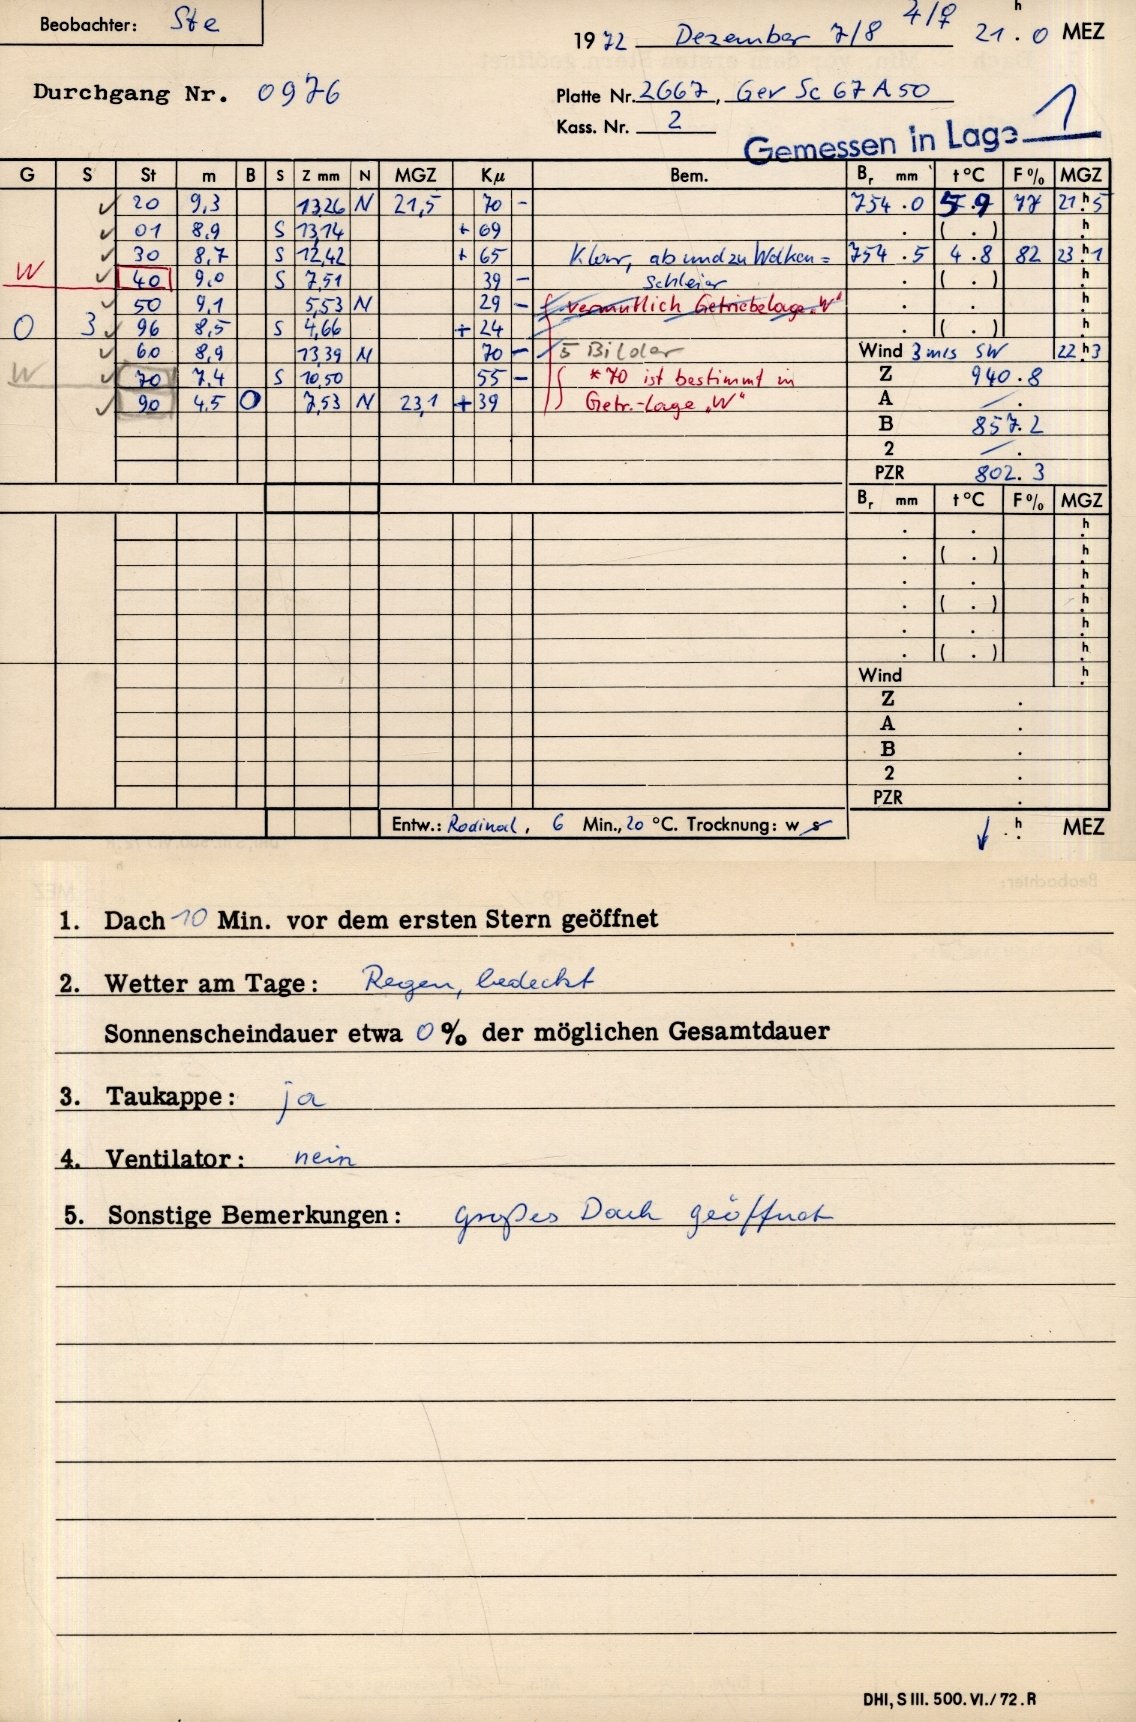 Beobachter: Ste
1972 Dezember 7/8 4/♀ 21.h0 MEZ
Durchgang Nr. 0976
Platte Nr. 2667, Gev Sc 67 A 50
Kass. Nr. 2
Gemessen in Lage 1
G S St m B S Z mm N MGZ Kμ Bem. Br mm t°C F% MGZ
✓ 20 9,3 13,26 N 21,5 70 - 754.0 5.9 77 21h.5
✓ 01 8,9 S 13,14 + 69 . ( . ) h.
✓ 30 8,7 S 12,42 + 65 Klar, ab und zu Wolken= 754.5 4.8 82 23h.1
W ✓ 40 9,0 S 7,51 39 - schleier . ( . ) h.
✓ 50 9,1 5,53 N 29 - vermutlich Getriebelage „W" . . h.
O 3 ✓ 96 8,5 S 4,66 + 24 . ( . ) h.
✓ 60 8,9 13,39 N 70 - 5 Bilder Wind 3 m/s SW 22h.3
W ✓ 70 7,4 S 10,50 55 - *70 ist bestimmt in Z 940.8
✓ 90 4,5 O 7,53 N 23,1 + 39 Getr.-Lage „W" A — .
B 857.2
2 — .
PZR 802.3
Br mm t°C F% MGZ
. . h.
. ( . ) h.
. . h.
. ( . ) h.
. . h.
. ( . ) h.
Wind h.
Z .
A .
B .
2 .
PZR .
Entw.: Rodinal, 6 Min., 20 °C. Trocknung: w s ↓ .h MEZ
1. Dach 10 Min. vor dem ersten Stern geöffnet
2. Wetter am Tage: Regen, bedeckt
Sonnenscheindauer etwa 0 % der möglichen Gesamtdauer
3. Taukappe: ja
4. Ventilator: nein
5. Sonstige Bemerkungen: großes Dach geöffnet
DHI, S III. 500. VI./72. R